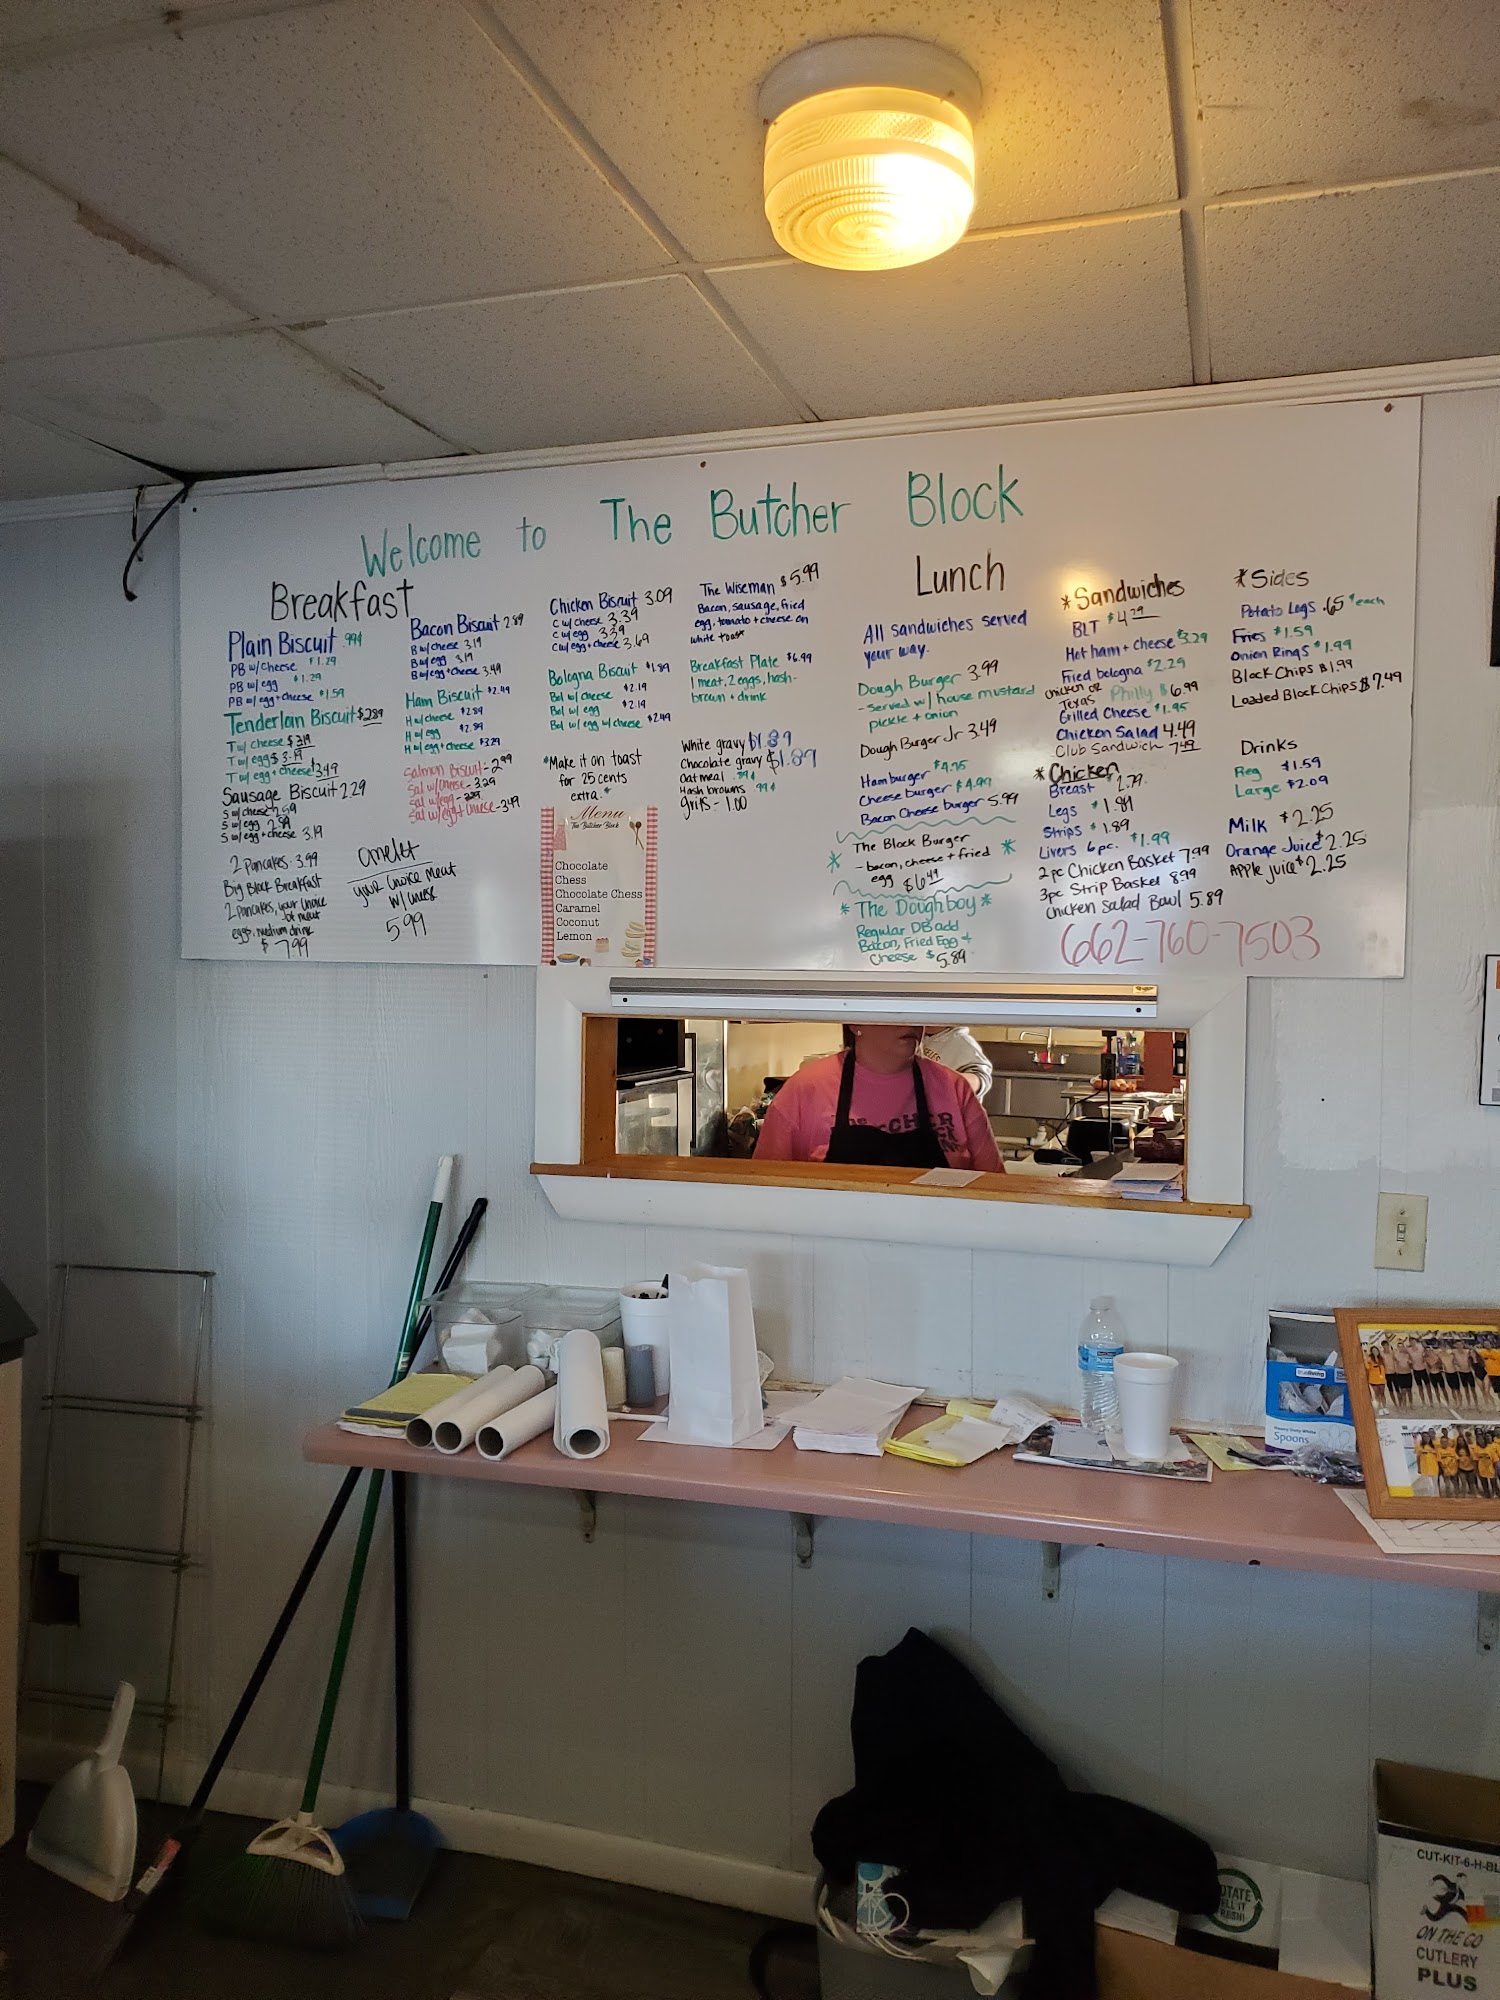 Welcome to The Butcher Block
Breakfast
Plain Biscuit .99¢
PB w/cheese $1.29
PB w/egg $1.29
PB w/egg+cheese $1.59
Tenderloin Biscuit $2.89
T w/ cheese $3.19
T w/egg $3.19
T w/egg+cheese $3.49
Sausage Biscuit 2.29
S w/cheese 2.59
S w/ egg 2.89
S w/egg+cheese 3.19
2 Pancakes - 3.99
Big Block Breakfast
2 Pancakes, your choice
of meat
eggs, medium drink
$7.99
Bacon Biscuit 2.89
B w/cheese 3.19
B w/egg 3.19
B w/egg+cheese 3.49
Ham Biscuit $2.49
H w/cheese $2.89
H w/egg $2.89
H w/egg+cheese $3.29
Salmon Biscuit - 2.99
Sal w/cheese - 3.29
Sal w/egg -
Sal w/egg+cheese - 3.49
omelet
your choice meat
w/ cheese
5.99
Chicken Biscuit 3.09
C w/cheese 3.39
C w/egg 3.39
C w/egg+cheese 3.69
Bologna Biscuit $1.89
Bol w/cheese $2.19
Bol w/ egg $2.19
Bol w/ egg w/cheese $2.49
*Make it on toast
for 25 cents
extra.*
Menu
The Butcher Block
Chocolate
Chess
Chocolate Chess
Caramel
Coconut
Lemon
The Wiseman $5.99
Bacon, sausage, fried
egg, tomato + cheese on
white toast
Breakfast Plate $6.99
1 meat, 2 eggs, hash-
brown + drink
White gravy $1.89
Chocolate gravy $1.89
Oatmeal .99¢
Hash browns .99¢
grits - 1.00
Lunch
All sandwiches served
your way.
Dough Burger 3.99
- served w/ house mustard
pickle + onion
Dough Burger Jr 3.49
Hamburger $4.75
Cheese burger $4.99
Bacon Cheese burger 5.99
The Block Burger
- bacon, cheese + fried
egg $6.49
* The Doughboy *
Regular DB add
Bacon, Fried Egg &
Cheese $5.89
*Sandwiches
BLT $4.29
Hot ham + Cheese $3.29
Fried bologna $2.29
Chicken or
Texas Philly $6.99
Grilled Cheese $1.95
Chicken Salad 4.49
Club Sandwich 7.49
*Chicken
Breast $2.79
Legs $1.99
Strips $1.89
Livers 6pc. $1.99
2pc Chicken Basket 7.99
3pc Strip Basket 8.99
Chicken Salad Bowl 5.89
662-760-7503
*Sides
Potato Logs .65¢ each
Fries $1.59
Onion Rings $1.99
Block Chips $1.99
Loaded Block Chips $7.49
Drinks
Reg $1.59
Large $2.09
Milk $2.25
Orange Juice $2.25
Apple juice $2.25
Spoons
CUT-KIT-6-H-BL
ON THE GO
CUTLERY
PLUS